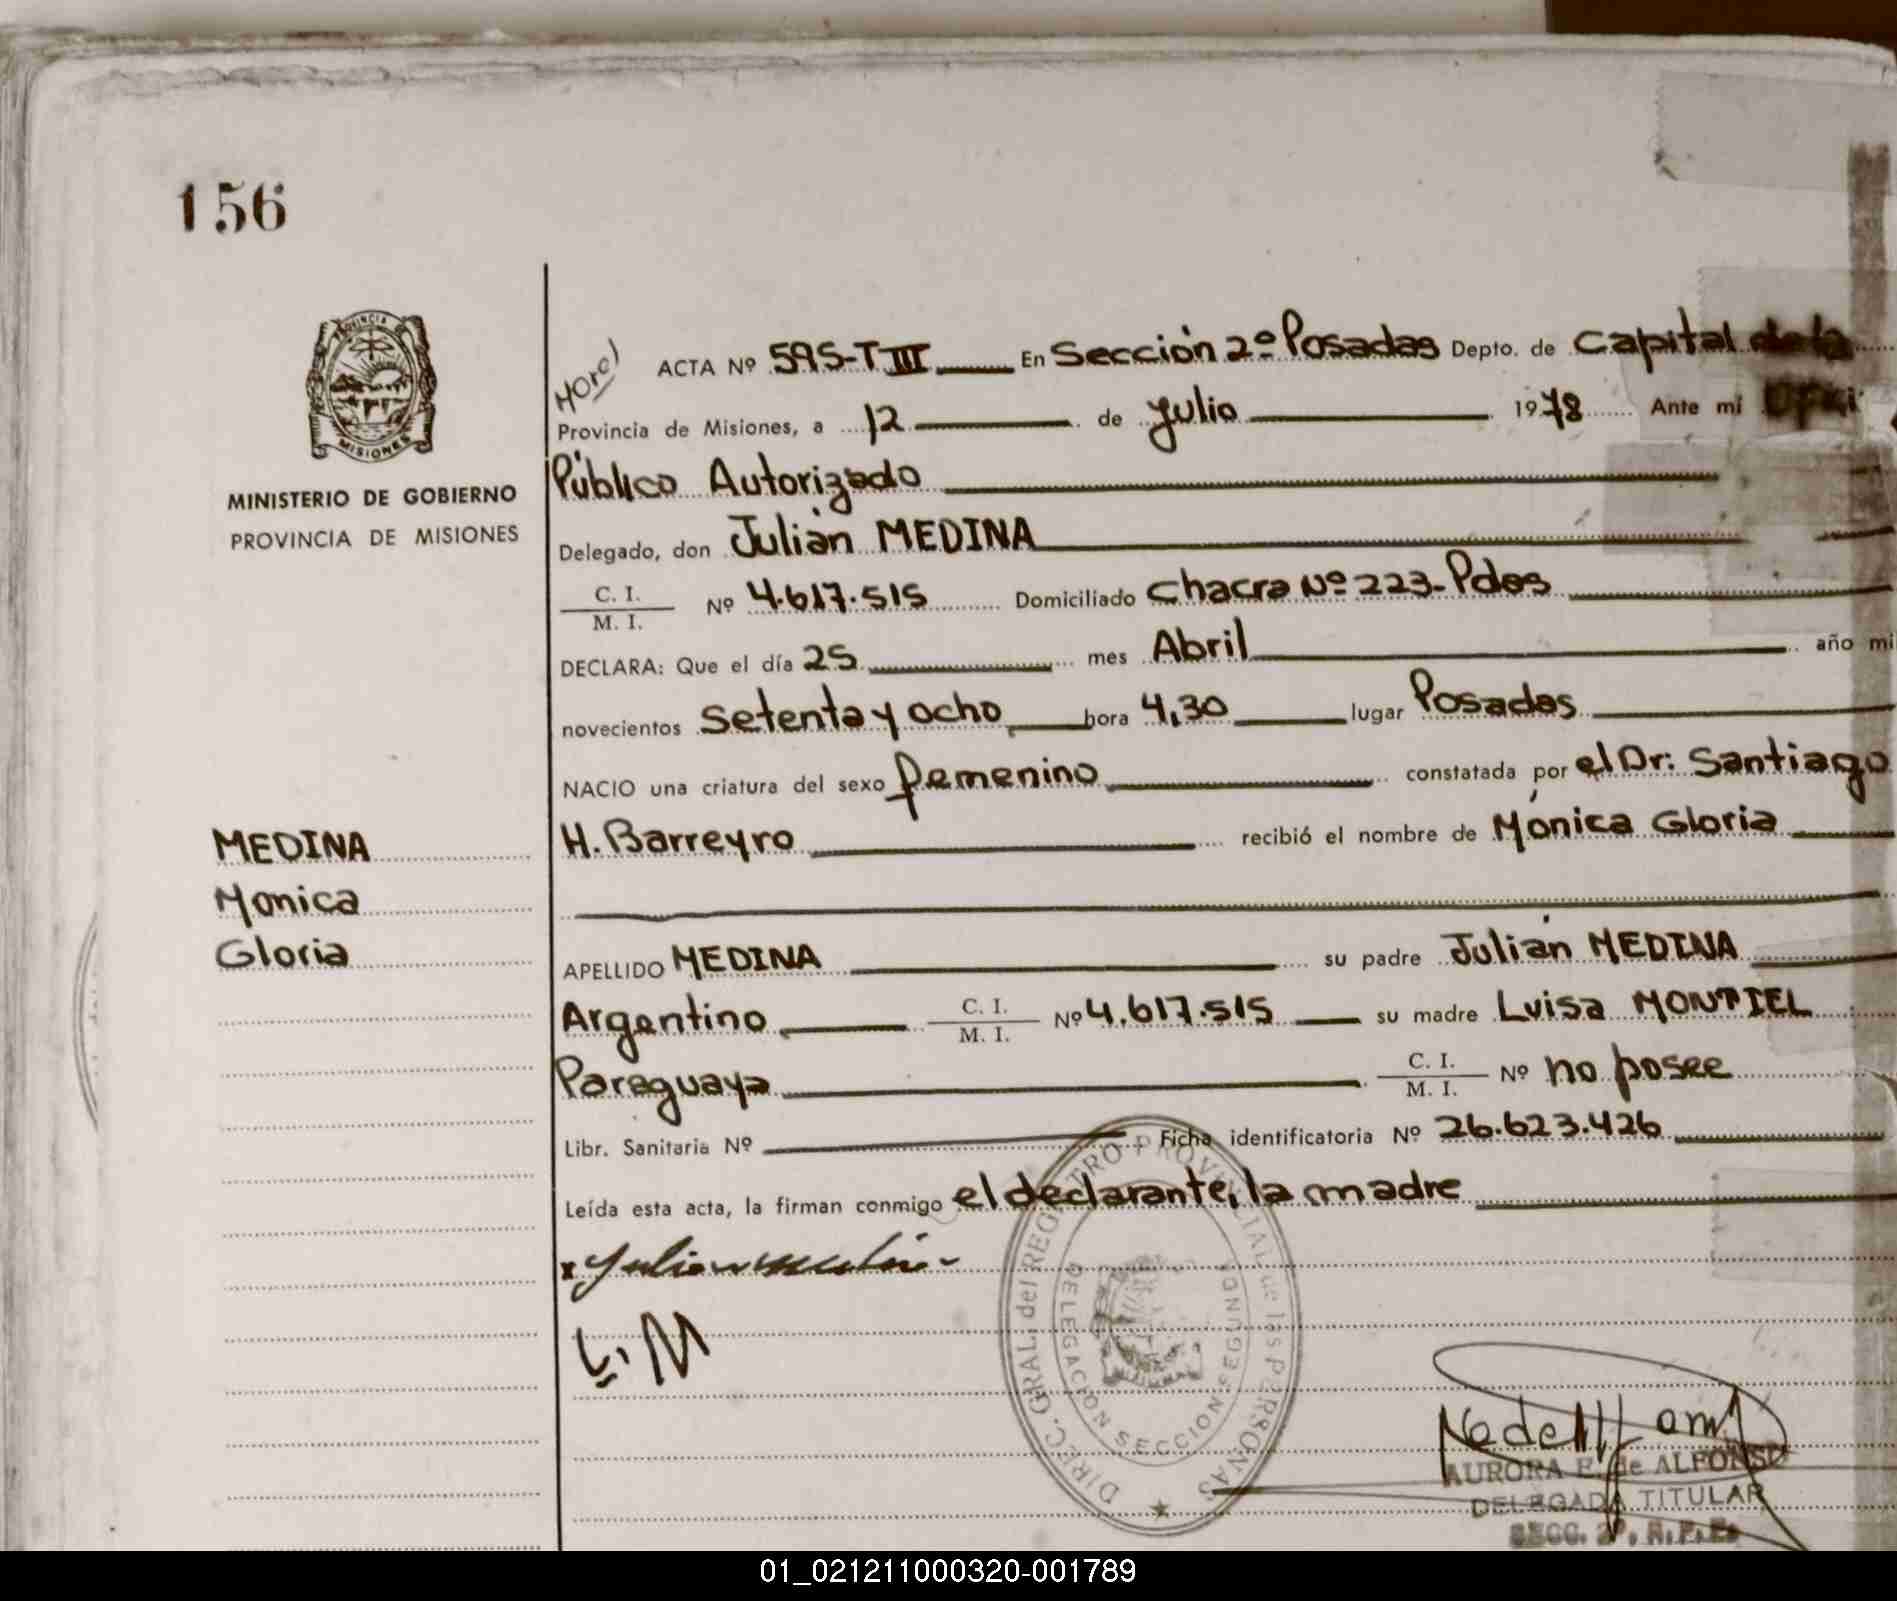 156
PROVINCIA DE
MISIONES
MINISTERIO DE GOBIERNO
PROVINCIA DE MISIONES
MEDINA
Monica
Gloria
ACTA Nº 595-T III En Sección 2º Posadas Depto. de Capital de la
Provincia de Misiones, a 12 de Julio 1978 Ante mí
Público Autorizado
Delegado, don Julián MEDINA
C. I.
M. I. Nº 4.617.515 Domiciliado Chacra Nº 223-Pdas
DECLARA: Que el día 25 mes Abril año mi
novecientos setenta y ocho hora 4,30 lugar Posadas
NACIO una criatura del sexo femenino constatada por el Dr: Santiago
H. Barreyro recibió el nombre de Mónica Gloria
APELLIDO MEDINA su padre Julián MEDINA
Argentino C. I.
M. I. Nº 4.617.515 su madre Luisa MONTIEL
Paraguaya C. I.
M. I. Nº no posee
Libr. Sanitaria Nº Ficha identificatoria Nº 26.623.426
Leída esta acta, la firman conmigo el declarante, la madre
x Julian Medina
L. M
DIREC. GRAL. del REGISTRO PROVINCIAL de las PERSONAS
DELEGACION SECCION SEGUNDA
AURORA E. de ALFONSO
DELEGADA TITULAR
SECC. 2ª. R. P. Ps
01_021211000320-001789